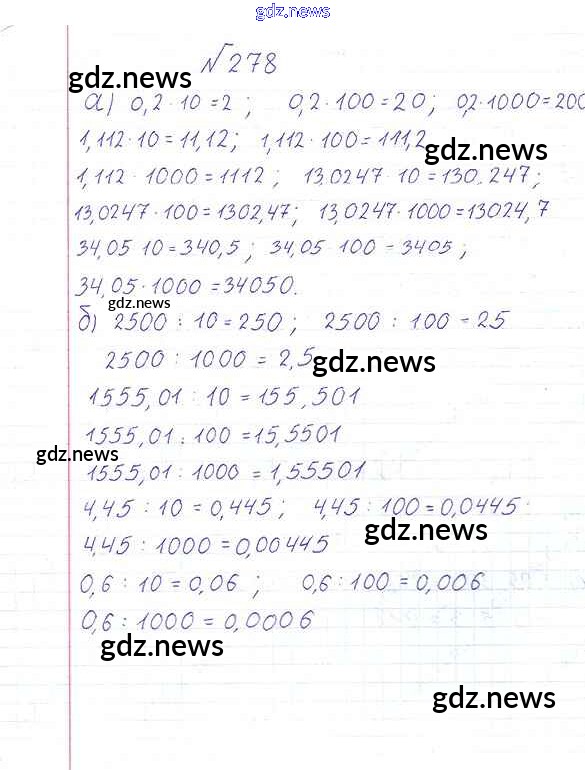 gdz.news
№278
gdz.news
а) 0,2 · 10 = 2 ; 0,2 · 100 = 20 ; 0,2 · 1000 = 200
1,112 · 10 = 11,12 ; 1,112 · 100 = 111,2
gdz.news
1,112 · 1000 = 1112 ; 13,0247 · 10 = 130,247 ;
13,0247 · 100 = 1302,47 ; 13,0247 · 1000 = 13024,7
34,05 · 10 = 340,5 ; 34,05 · 100 = 3405 ;
34,05 · 1000 = 34050.
gdz.news
б) 2500 : 10 = 250 ; 2500 : 100 = 25
2500 : 1000 = 2,5
gdz.news
1555,01 : 10 = 155,501
1555,01 : 100 = 15,5501
gdz.news
1555,01 : 1000 = 1,55501
4,45 : 10 = 0,445 ; 4,45 : 100 = 0,0445
gdz.news
4,45 : 1000 = 0,00445
0,6 : 10 = 0,06 ; 0,6 : 100 = 0,006
0,6 : 1000 = 0,0006
gdz.news
gdz.news